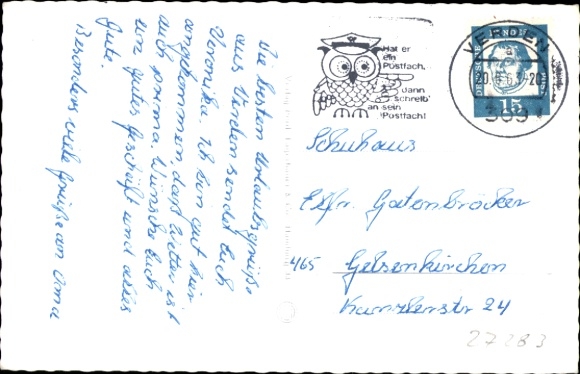 Die besten Urlaubsgrüße
aus Verden sendet Euch
Veronika. Ich bin gut hier
angekommen das Wetter ist
auch prima. Wünsche Euch
ein gutes Geschäft und alles
Gute.
Besonders viele Grüße an Oma
Hat er
ein
Postfach,
dann
schreib'
an sein
Postfach!
VERDEN
20
309
DEUTSCHE
15
Schuhaus
Gatenbröcker
465 Gelsenkirchen
24
27283